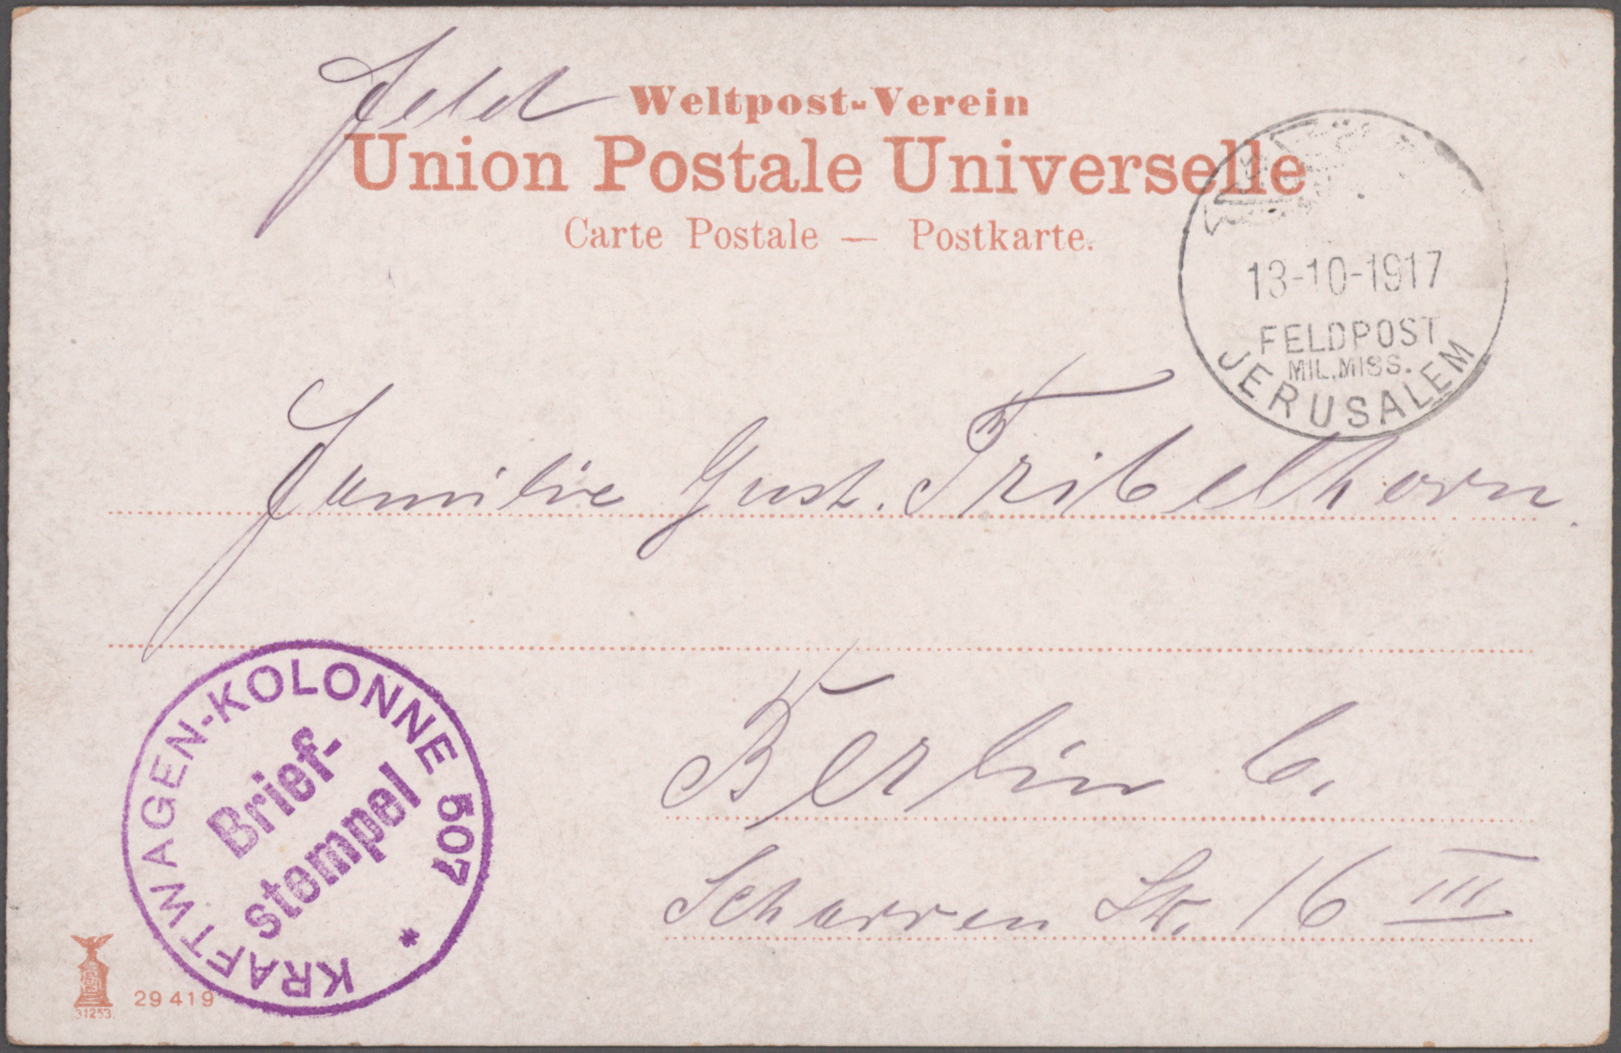 Feld
Weltpost-Verein
Union Postale Universelle
Carte Postale — Postkarte.
13-10-1917
FELDPOST
MIL.MISS.
JERUSALEM
Familie Gust. Tribelhorn.
Berlin C.
Scharren Str. 16 III
KRAFTWAGEN-KOLONNE 507 *
Brief-
stempel
29419
31253.